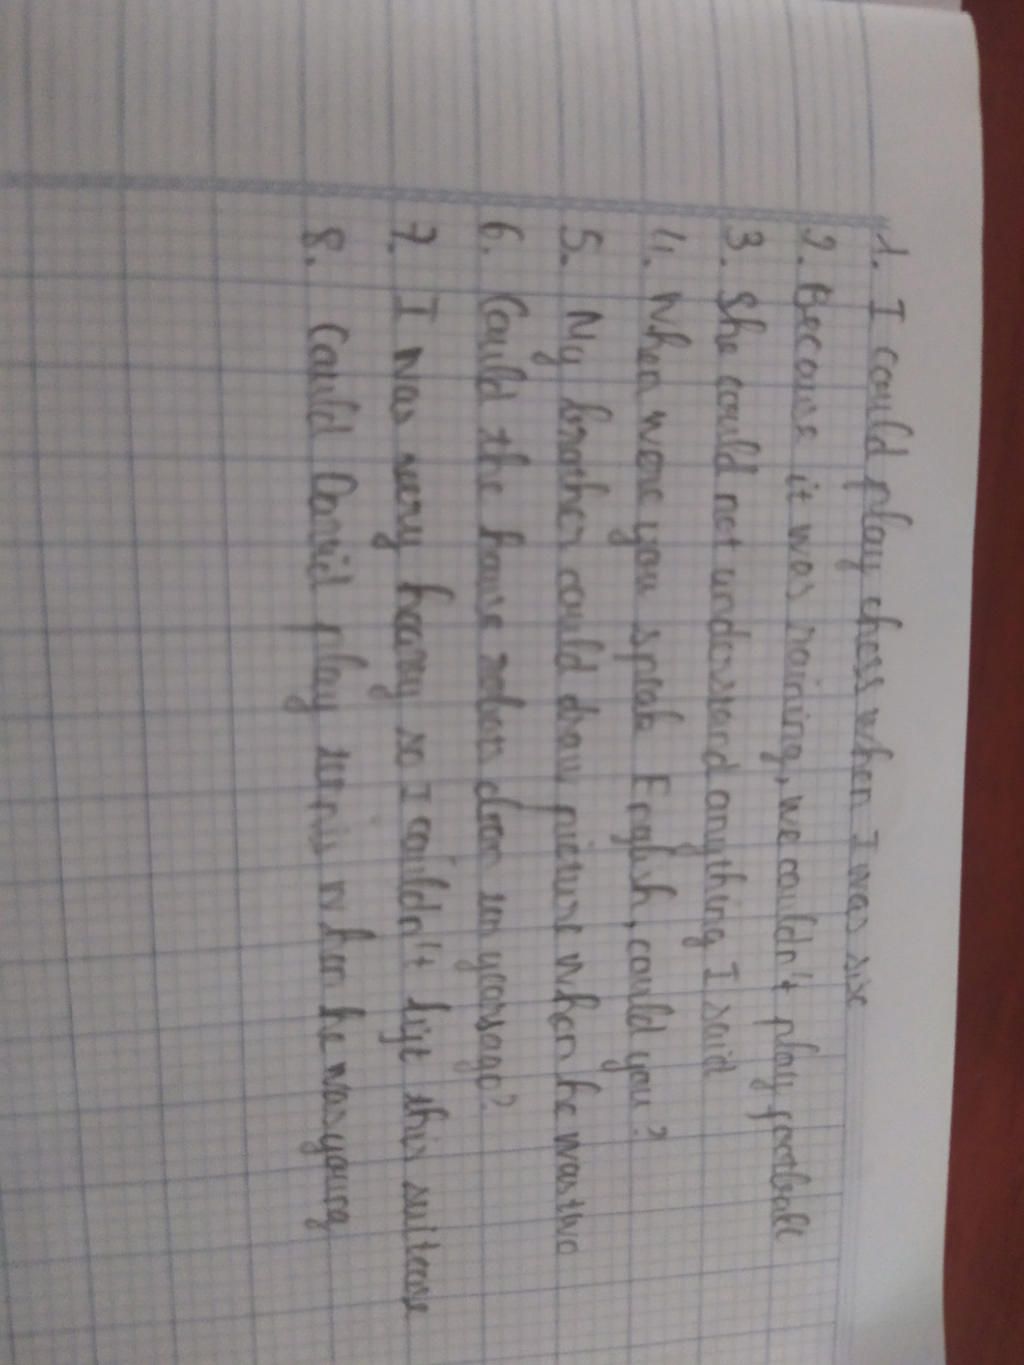 1. I could play chess when I was six
2. Because it was raining, we couldn't play football
3. She could not understand anything I said
4. When were you speak English, could you?
5. My brother could draw picture when he was two
6. Could the house down ten years ago?
7. I was very heavy so I couldn't lift this suitcase
8. Could David play tennis when he was young